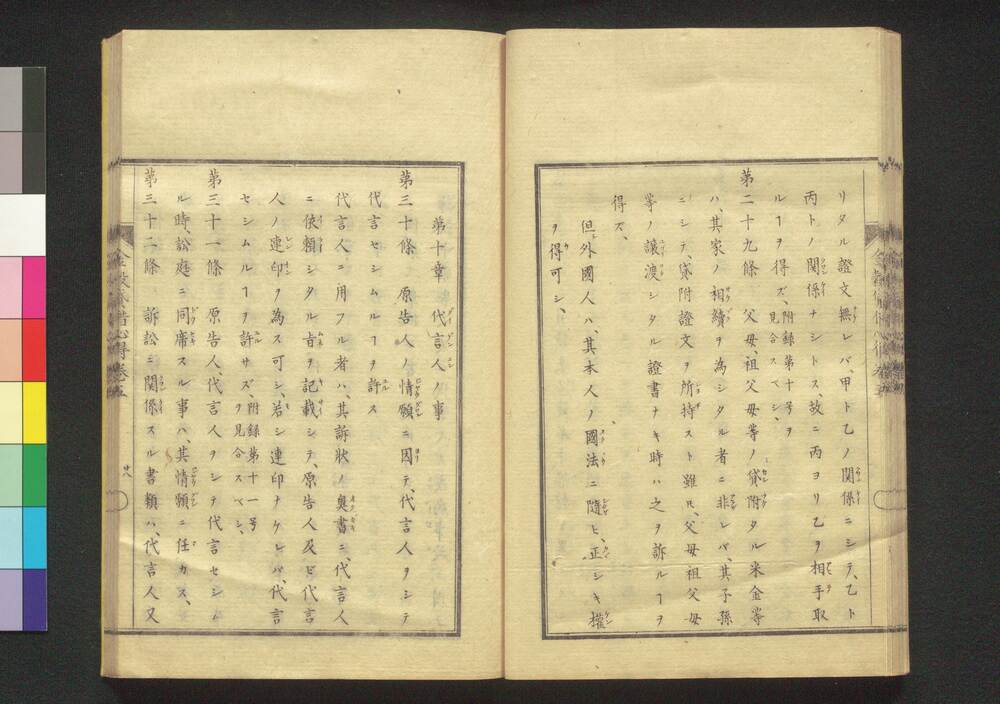 リタル證文無レバ、甲ト乙ノ關係ニシテ、乙ト
丙トノ關係ナシトス、故ニ丙ヨリ乙ヲ相手取
ルヿヲ得ズ、附録第十号ヲ見合スベシ、
第二十九條 父母、祖父母等ノ貸附タル米金等
ハ、其家ノ相續ヲ為シタル者ニ非レバ、其子孫
ニシテ、貸附證文ヲ所持スト雖𪜈、父母祖父母
等ノ讓渡シタル證書ナキ時ハ之ヲ訴ルヿヲ
得ズ、
但シ外國人ハ、其本人ノ國法ニ隨ヒ、正シキ權
ヲ得可シ、
金穀貸借心得 卷五
第十章 代言人ノ事
第三十條 原告人ノ情願ニ因テ、代言人ヲシテ
代言セシムルヿヲ許ス
代言人ニ用フル者ハ、其訴状ノ奥書ニ、代言人
ニ依頼シタル旨ヲ記載シテ、原告人及ビ代言
人ノ連印ヲ為ス可シ、若シ連印ナケレバ、代言
セシムルヿヲ許サズ、附録第十一号ヲ見合スベシ、
第三十一條 原告人、代言人ヲシテ代言セシム
ル時、訟庭ニ同席スル事ハ、其情願ニ任カス、
第三十二條 訴訟ニ關係スル書類ハ、代言人又
金穀貸借心得卷五
廿八